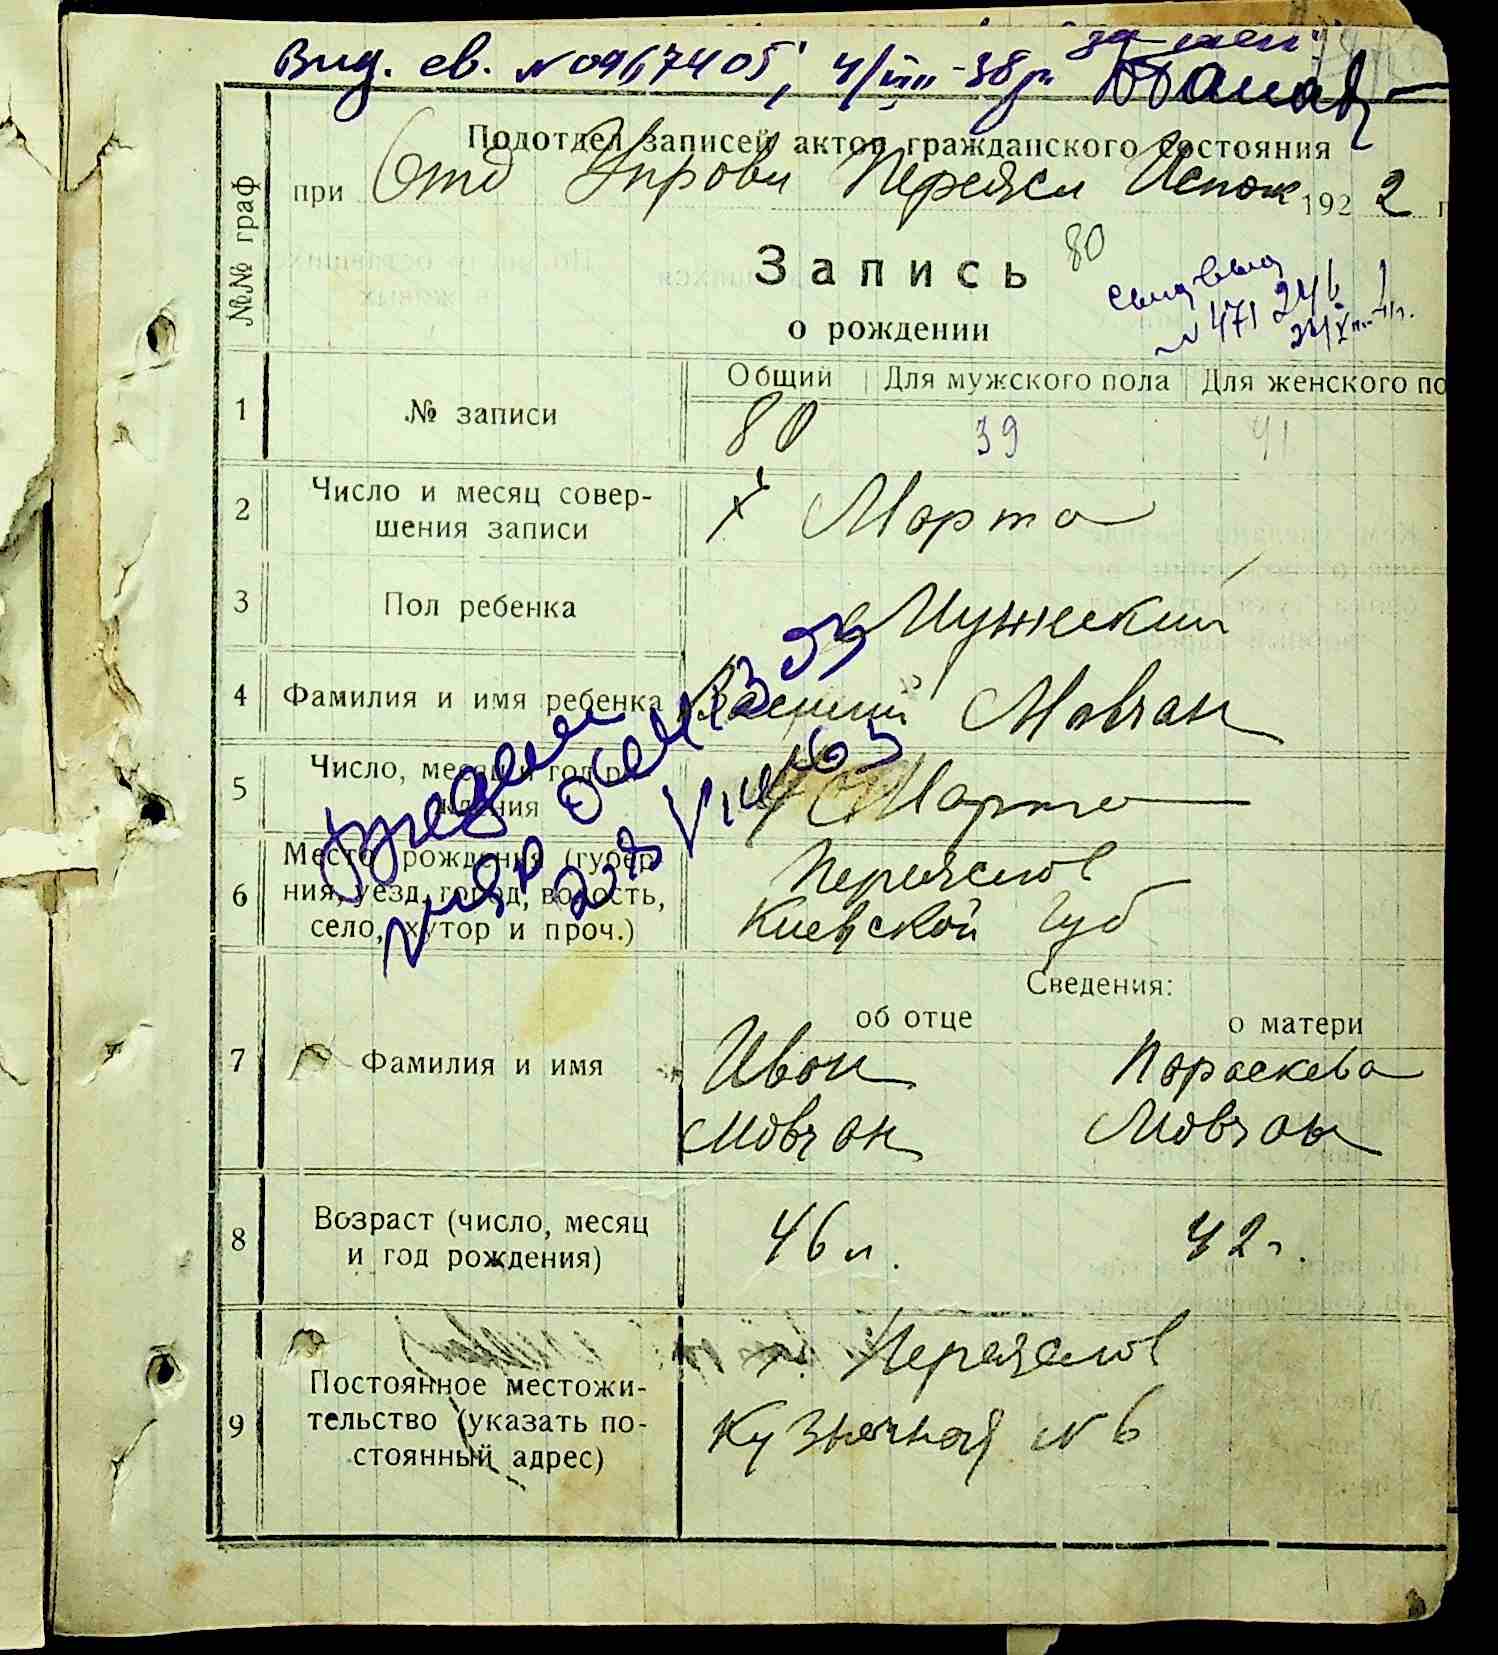 Вид. св. № 0967405, 4/VIII-38 р.
Подотдел записей актов гражданского состояния
при Отд Управл Переясл Испол 1922 г
№№ граф
Запись 80
№ 471
о рождении
Общий Для мужского пола Для женского по
1 № записи 80 39 41
2 Число и месяц совер-
шения записи Марта
3 Пол ребенка Мужеский
4 Фамилия и имя ребенка Василий Мовчан
5 Число, месяц и год ро-
ждения Марта
6 Место рождения (губер-
ния, уезд, город, волость,
село, хутор и проч.) Переяслов
Киевской губ
Сведения:
об отце о матери
7 Фамилия и имя Иван Параскева
Мовчан Мовчан
8 Возраст (число, месяц
и год рождения) 46 л. 42 г.
9 Постоянное местожи-
тельство (указать по-
стоянный адрес) г. Переяслов
Кузнечная № 6